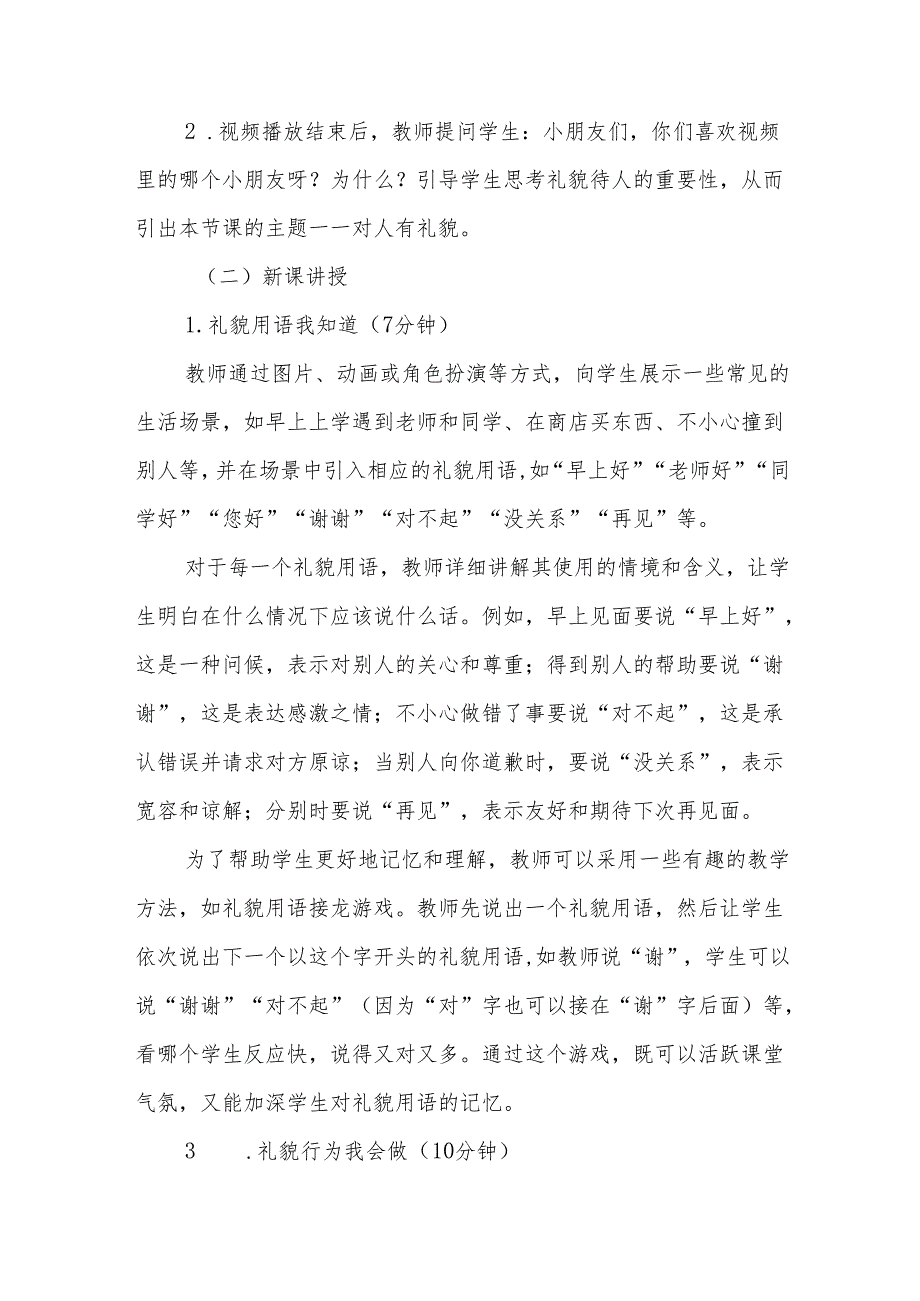 2 .视频播放结束后，教师提问学生：小朋友们，你们喜欢视频
里的哪个小朋友呀？为什么？引导学生思考礼貌待人的重要性，从而
引出本节课的主题一一对人有礼貌。
（二）新课讲授
1.礼貌用语我知道（7分钟）
教师通过图片、动画或角色扮演等方式，向学生展示一些常见的
生活场景，如早上上学遇到老师和同学、在商店买东西、不小心撞到
别人等,并在场景中引入相应的礼貌用语,如“早上好”“老师好”“同
学好”“您好”“谢谢”“对不起”“没关系”“再见”等。
对于每一个礼貌用语，教师详细讲解其使用的情境和含义，让学
生明白在什么情况下应该说什么话。例如，早上见面要说“早上好”，
这是一种问候，表示对别人的关心和尊重；得到别人的帮助要说“谢
谢”，这是表达感激之情；不小心做错了事要说“对不起”，这是承
认错误并请求对方原谅；当别人向你道歉时，要说“没关系”，表示
宽容和谅解；分别时要说“再见”，表示友好和期待下次再见面。
为了帮助学生更好地记忆和理解，教师可以采用一些有趣的教学
方法，如礼貌用语接龙游戏。教师先说出一个礼貌用语，然后让学生
依次说出下一个以这个字开头的礼貌用语,如教师说“谢”，学生可以
说“谢谢”“对不起”（因为“对”字也可以接在“谢”字后面）等，
看哪个学生反应快，说得又对又多。通过这个游戏，既可以活跃课堂
气氛，又能加深学生对礼貌用语的记忆。
3 .礼貌行为我会做（10分钟）